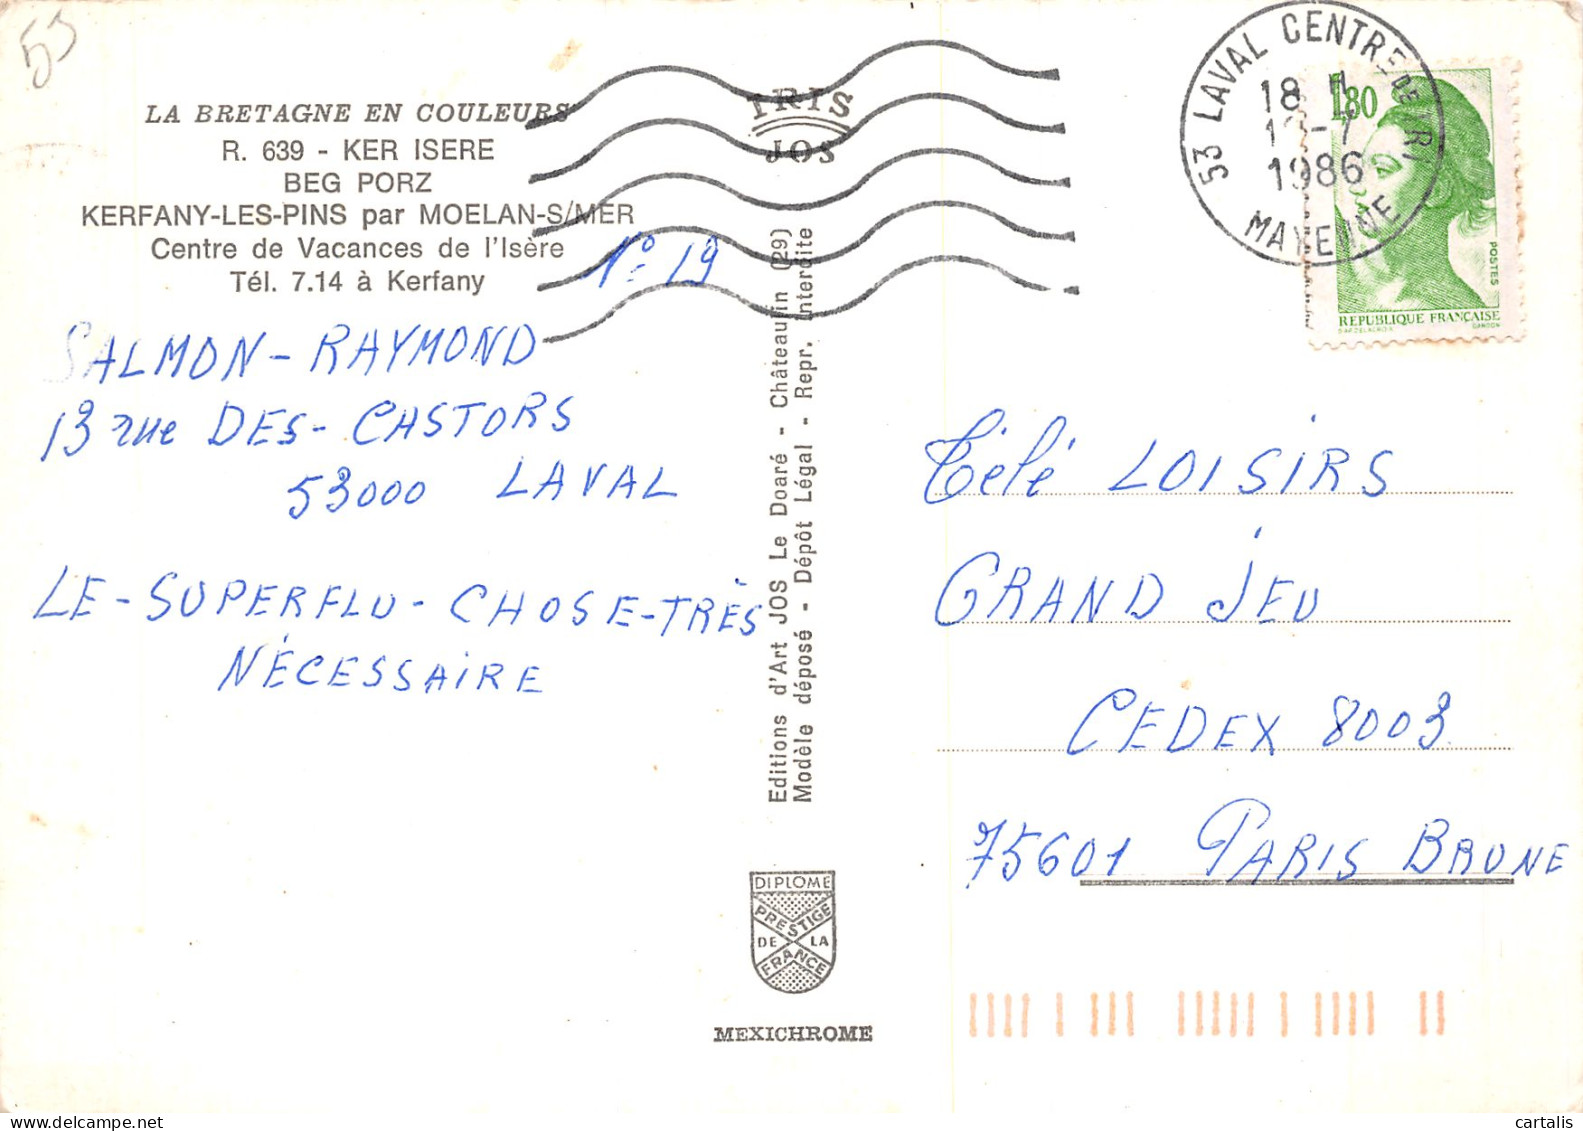 53
LA BRETAGNE EN COULEURS
R. 639 - KER ISERE
BEG PORZ
KERFANY-LES-PINS par MOELAN-S/MER
Centre de Vacances de l'Isère
Tél. 7.14 à Kerfany
N° 19
SALMON - RAYMOND
13 rue DES - CASTORS
53000 LAVAL
LE - SUPERFLU - CHOSE - TRÈS
NÉCESSAIRE
IRIS
JOS
Editions d'Art JOS Le Doaré - Châteaulin (29)
Modèle déposé - Dépôt Légal - Repr. Interdite
DIPLOME
PRESTIGE
DE LA
FRANCE
MEXICHROME
53 LAVAL CENTRE DE TRI
18 H
1986
MAYENNE
1,80
POSTES
REPUBLIQUE FRANÇAISE
GANDON
Télé LOISIRS
GRAND JEU
CEDEX 8003
75601 PARIS BRUNE
cartalis